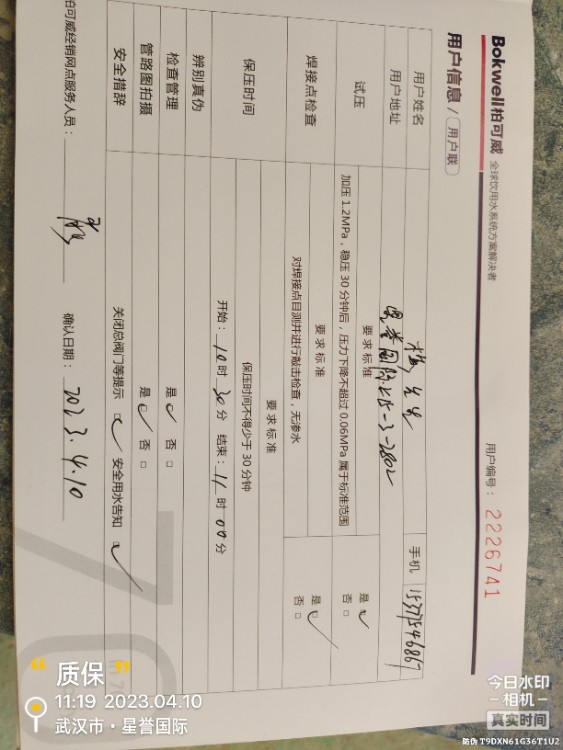 Bokwell柏可威 全球饮用水系统方案解决者
用户编号： 2226741
用户信息 / 用户联
用户姓名 先生 手机
用户地址 星誉国际K15-3-2802
试压 要求标准
加压 1.2MPa，稳压 30 分钟后，压力下降不超过 0.06MPa 属于标准范围 是 ✓ 否 □
焊接点检查 要求标准
对焊接点目测并进行敲击检查，无渗水 是 ✓ 否 □
保压时间 要求标准
保压时间不得少于 30 分钟
开始： 10 时 30 分 结束： 11 时 00 分
辨别真伪
检查管理 是 ✓ 否 □
管路图拍摄 是 ✓ 否 □
安全措辞 关闭总阀门等提示 ✓ 安全用水告知 ✓
柏可威经销网点服务人员： 确认日期： 2023.4.10
“质保”
11:19 2023.04.10
武汉市·星誉国际
今日水印
-相机-
真实时间
防伪 T9DXN61G36T1U2